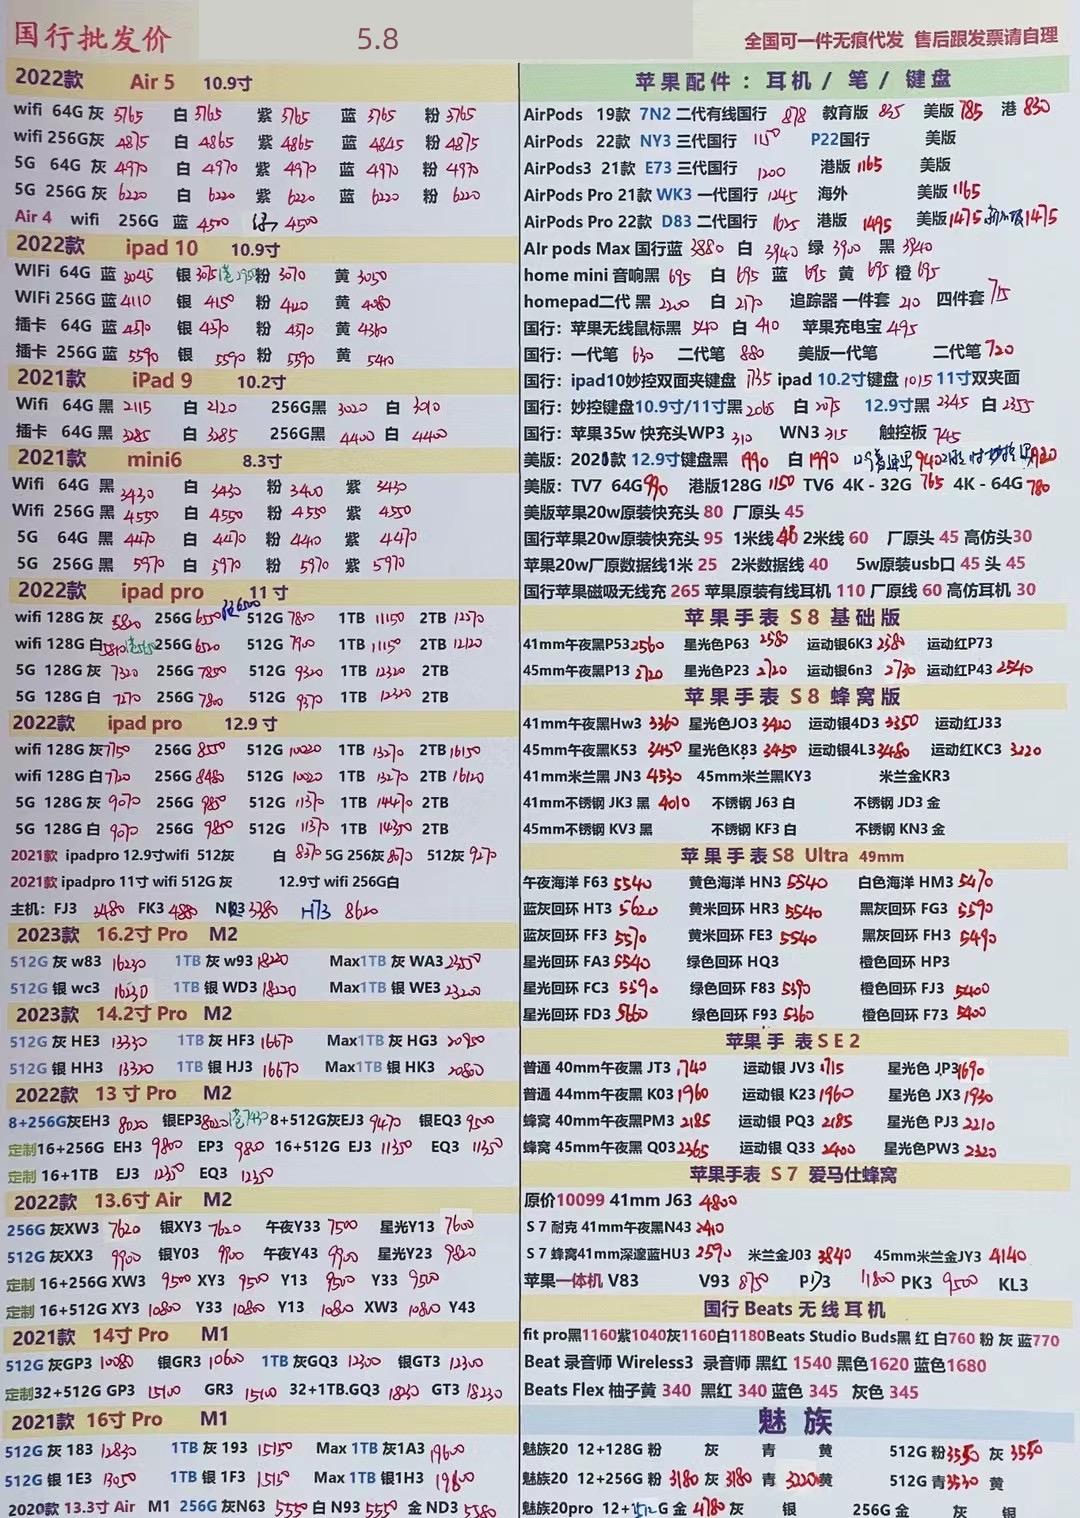 国行批发价
5.8
全国可一件无痕代发 售后跟发票请自理
2022款 Air 5 10.9寸
wifi 64G 灰 3765 白 3765 紫 3765 蓝 3765 粉 3765
wifi 256G灰 4875 白 4865 紫 4865 蓝 4845 粉 4875
5G 64G 灰 4970 白 4970 紫 4970 蓝 4970 粉 4970
5G 256G 灰 6220 白 6220 紫 6220 蓝 6220 粉 6220
Air 4 wifi 256G 蓝 4500 4500
2022款 ipad 10 10.9寸
WIFi 64G 蓝 3045 银 3075 粉 3070 黄 3050
WIFi 256G 蓝 4110 银 4150 粉 4120 黄 4080
插卡 64G 蓝 4370 银 4370 粉 4370 黄 4360
插卡 256G 蓝 5590 银 5590 粉 5590 黄 5410
2021款 iPad 9 10.2寸
Wifi 64G 黑 2115 白 2120 256G黑 3020 白 3010
插卡 64G 黑 3285 白 3285 256G黑 4400 白 4400
2021款 mini6 8.3寸
Wifi 64G 黑 3430 白 3430 粉 3400 紫 3430
Wifi 256G 黑 4550 白 4550 粉 4550 紫 4550
5G 64G 黑 4470 白 4470 粉 4410 紫 4470
5G 256G 黑 5970 白 5970 粉 5970 紫 5970
2022款 ipad pro 11寸
wifi 128G 灰 5820 256G 6550 512G 7800 1TB 11150 2TB 12270
wifi 128G 白 256G 6520 512G 7900 1TB 11150 2TB 12120
5G 128G 灰 7320 256G 7850 512G 9320 1TB 12320 2TB
5G 128G 白 7270 256G 7800 512G 9370 1TB 12320 2TB
2022款 ipad pro 12.9 寸
wifi 128G 灰 7750 256G 8550 512G 10020 1TB 13270 2TB 16150
wifi 128G 白 7720 256G 8480 512G 10020 1TB 13270 2TB 16120
5G 128G 灰 9070 256G 9850 512G 11370 1TB 14470 2TB
5G 128G 白 9070 256G 9850 512G 11370 1TB 14350 2TB
2021款 ipadpro 12.9寸wifi 512灰 白 8370 5G 256灰 8670 512灰 9270
2021款 ipadpro 11寸 wifi 512G 灰 12.9寸 wifi 256G白
主机: FJ3 3480 FK3 4880 3380 H73 8620
2023款 16.2寸 Pro M2
512G 灰 w83 16230 1TB 灰 w93 18220 Max1TB 灰 WA3 23550
512G 银 wc3 16230 1TB 银 WD3 18220 Max1TB 银 WE3 23200
2023款 14.2寸 Pro M2
512G 灰 HE3 13330 1TB 灰 HF3 16670 Max1TB 灰 HG3 20950
512G 银 HH3 13320 1TB 银 HJ3 16670 Max1TB 银 HK3 20800
2022款 13 寸 Pro M2
8+256G灰EH3 8020 银EP3 8020 港7430 8+512G灰EJ3 9470 银EQ3 9500
定制16+256G EH3 9800 EP3 9800 16+512G EJ3 11350 EQ3 11350
定制 16+1TB EJ3 12350 EQ3 12350
2022款 13.6寸 Air M2
256G 灰XW3 7620 银XY3 7620 午夜Y33 7500 星光Y13 7600
512G 灰XX3 9900 银Y03 9900 午夜Y43 9900 星光Y23 9820
定制 16+256G XW3 9500 XY3 9500 Y13 9500 Y33 9500
定制 16+512G XY3 10800 Y33 10800 Y13 10800 XW3 10800 Y43
2021款 14寸 Pro M1
512G 灰GP3 10080 银GR3 10600 1TB 灰GQ3 12300 银GT3 12300
定制32+512G GP3 15100 GR3 15100 32+1TB.GQ3 18230 GT3 18230
2021款 16寸 Pro M1
512G 灰 183 12830 1TB 灰 193 15150 Max 1TB 灰1A3 19600
512G 银 1E3 13050 1TB 银 1F3 15150 Max 1TB 银1H3 19800
2020款 13.3寸 Air M1 256G 灰N63 5550 白 N93 5550 金 ND3 5380
苹果配件：耳机 / 笔 / 键盘
AirPods 19款 7N2 二代有线国行 878 教育版 835 美版 785 港 830
AirPods 22款 NY3 三代国行 1150 P22国行 美版
AirPods3 21款 E73 三代国行 1200 港版 1165 美版
AirPods Pro 21款 WK3 一代国行 1245 海外 美版 1165
AirPods Pro 22款 D83 二代国行 1625 港版 1495 美版 1475 新加坡 1475
AIr pods Max 国行蓝 3880 白 3940 绿 3900 黑 3940
home mini 音响黑 695 白 695 蓝 695 黄 695 橙 695
homepad二代 黑 2200 白 2170 追踪器 一件套 210 四件套 715
国行：苹果无线鼠标黑 540 白 410 苹果充电宝 495
国行：一代笔 630 二代笔 880 美版一代笔 二代笔 720
国行：ipad10妙控双面夹键盘 1735 ipad 10.2寸键盘 1015 11寸双夹面
国行：妙控键盘10.9寸/11寸黑 2065 白 2075 12.9寸黑 2345 白 2355
国行：苹果35w 快充头WP3 310 WN3 315 触控板 745
美版：2021款 12.9寸键盘黑 1990 白 1990
美版：TV7 64G 990 港版128G 1150 TV6 4K - 32G 765 4K - 64G 780
美版苹果20w原装快充头 80 厂原头 45
国行苹果20w原装快充头 95 1米线 2米线 60 厂原头 45 高仿头30
苹果20w厂原数据线1米 25 2米数据线 40 5w原装usb口 45 头 45
国行苹果磁吸无线充 265 苹果原装有线耳机 110 厂原线 60 高仿耳机 30
苹果手表 S8 基础版
41mm午夜黑P53 2560 星光色P63 2580 运动银6K3 2580 运动红P73
45mm午夜黑P13 2720 星光色P23 2720 运动银6n3 2730 运动红P43 2540
苹果手表 S8 蜂窝版
41mm午夜黑Hw3 3360 星光色JO3 3420 运动银4D3 3350 运动红J33
45mm午夜黑K53 3450 星光色K83 3450 运动银4L3 3480 运动红KC3 3220
41mm米兰黑 JN3 4530 45mm米兰黑KY3 米兰金KR3
41mm不锈钢 JK3 黑 4010 不锈钢 J63 白 不锈钢 JD3 金
45mm不锈钢 KV3 黑 不锈钢 KF3 白 不锈钢 KN3 金
苹果手表S8 Ultra 49mm
午夜海洋 F63 5540 黄色海洋 HN3 5540 白色海洋 HM3 5470
蓝灰回环 HT3 5620 黄米回环 HR3 5540 黑灰回环 FG3 5590
蓝灰回环 FF3 5570 黄米回环 FE3 5540 黑灰回环 FH3 5490
星光回环 FA3 5540 绿色回环 HQ3 橙色回环 HP3
星光回环 FC3 5590 绿色回环 F83 5390 橙色回环 FJ3 5400
星光回环 FD3 5660 绿色回环 F93 5360 橙色回环 F73 5400
苹果手表SE2
普通 40mm午夜黑 JT3 1740 运动银 JV3 1715 星光色 JP3 1690
普通 44mm午夜黑 K03 1960 运动银 K23 1960 星光色 JX3 1930
蜂窝 40mm午夜黑PM3 2185 运动银 PQ3 2185 星光色 PJ3 2210
蜂窝 45mm午夜黑 Q03 2365 运动银 Q33 2400 星光色PW3 2320
苹果手表 S7 爱马仕蜂窝
原价10099 41mm J63 4800
S 7 耐克 41mm午夜黑N43 2410
S 7 蜂窝41mm深邃蓝HU3 2590 米兰金J03 3840 45mm米兰金JY3 4140
苹果一体机 V83 V93 8750 P173 11800 PK3 9500 KL3
国行 Beats 无线耳机
fit pro黑1160紫1040灰1160白1180Beats Studio Buds黑 红 白760 粉 灰 蓝770
Beat 录音师 Wireless3 录音师 黑红 1540 黑色1620 蓝色1680
Beats Flex 柚子黄 340 黑红 340 蓝色 345 灰色 345
魅族
魅族20 12+128G 粉 灰 青 黄 512G 粉 3550 灰 3550
魅族20 12+256G 粉 3180 灰 3180 青 3220 黄 512G 青 3530 黄
魅族20pro 12+512G 金 4780 灰 银 256G 金 灰 银